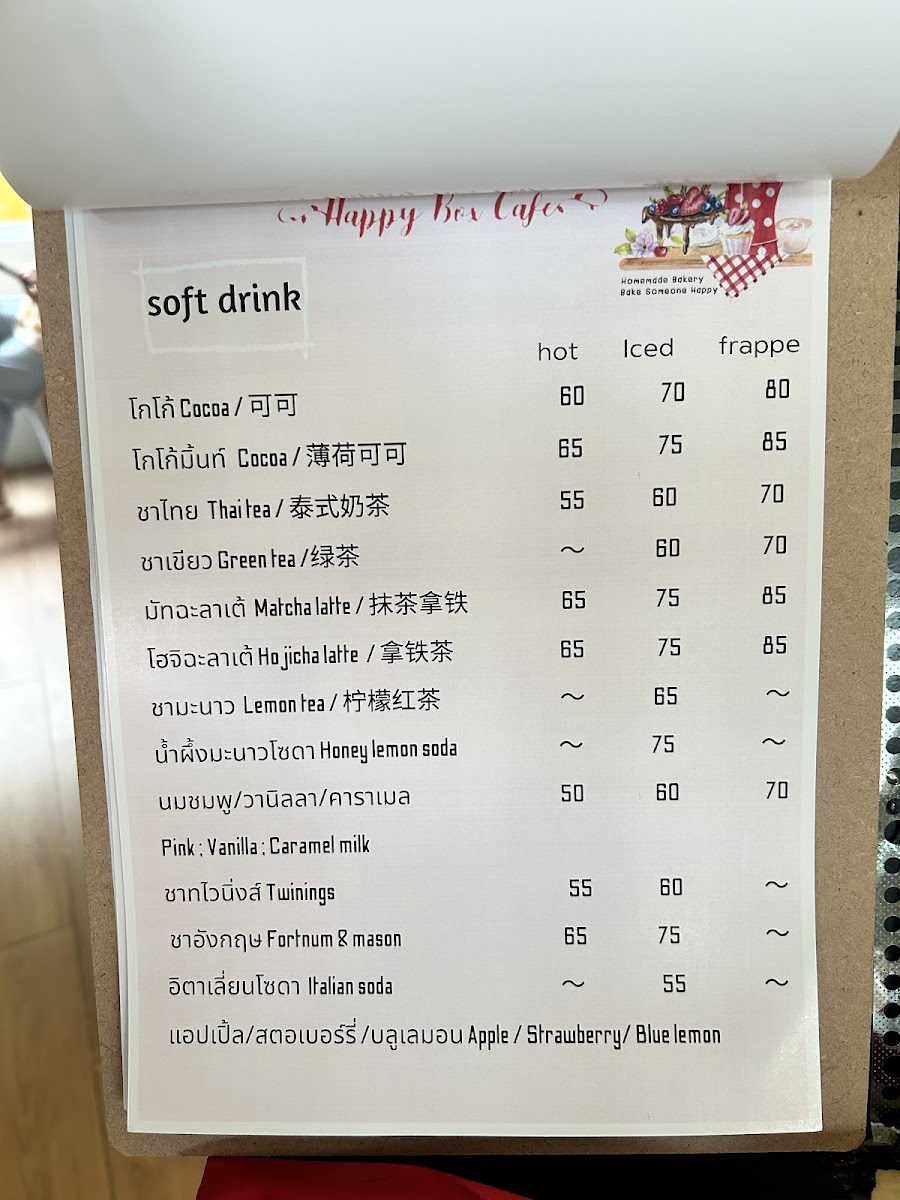 Happy Box Cafe
Homemade Bakery
Bake Someone Happy
soft drink
hot Iced frappe
โกโก้ Cocoa / 可可 60 70 80
โกโก้มิ้นท์ Cocoa / 薄荷可可 65 75 85
ชาไทย Thai tea / 泰式奶茶 55 60 70
ชาเขียว Green tea /绿茶 ~ 60 70
มัทฉะลาเต้ Matcha latte / 抹茶拿铁 65 75 85
โฮจิฉะลาเต้ Hojicha latte / 拿铁茶 65 75 85
ชามะนาว Lemon tea / 柠檬红茶 ~ 65 ~
น้ำผึ้งมะนาวโซดา Honey lemon soda ~ 75 ~
นมชมพู/วานิลลา/คาราเมล 50 60 70
Pink ; Vanilla ; Caramel milk
ชาทไวนิ่งส์ Twinings 55 60 ~
ชาอังกฤษ Fortnum & mason 65 75 ~
อิตาเลี่ยนโซดา Italian soda ~ 55 ~
แอปเปิ้ล/สตอเบอร์รี่ /บลูเลมอน Apple / Strawberry/ Blue lemon